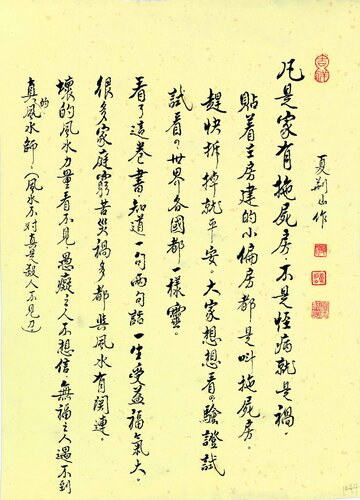 吉祥
凡是家有拖屍房不是怪病就是禍。
夏荊山作
貼着主房建的小偏房都是叫拖屍房。
趕快拆掉就平安。大家想想看看驗證試
試看看世界各國都一樣靈。
看了這卷書知道一句兩句話一生受益福氣大。
很多家庭窮苦災禍多都與風水有関連。
壞的風水力量看不見愚癡之人不想信無福之人遇不到
真的風水師。(風水不对真是殺人不見刀)